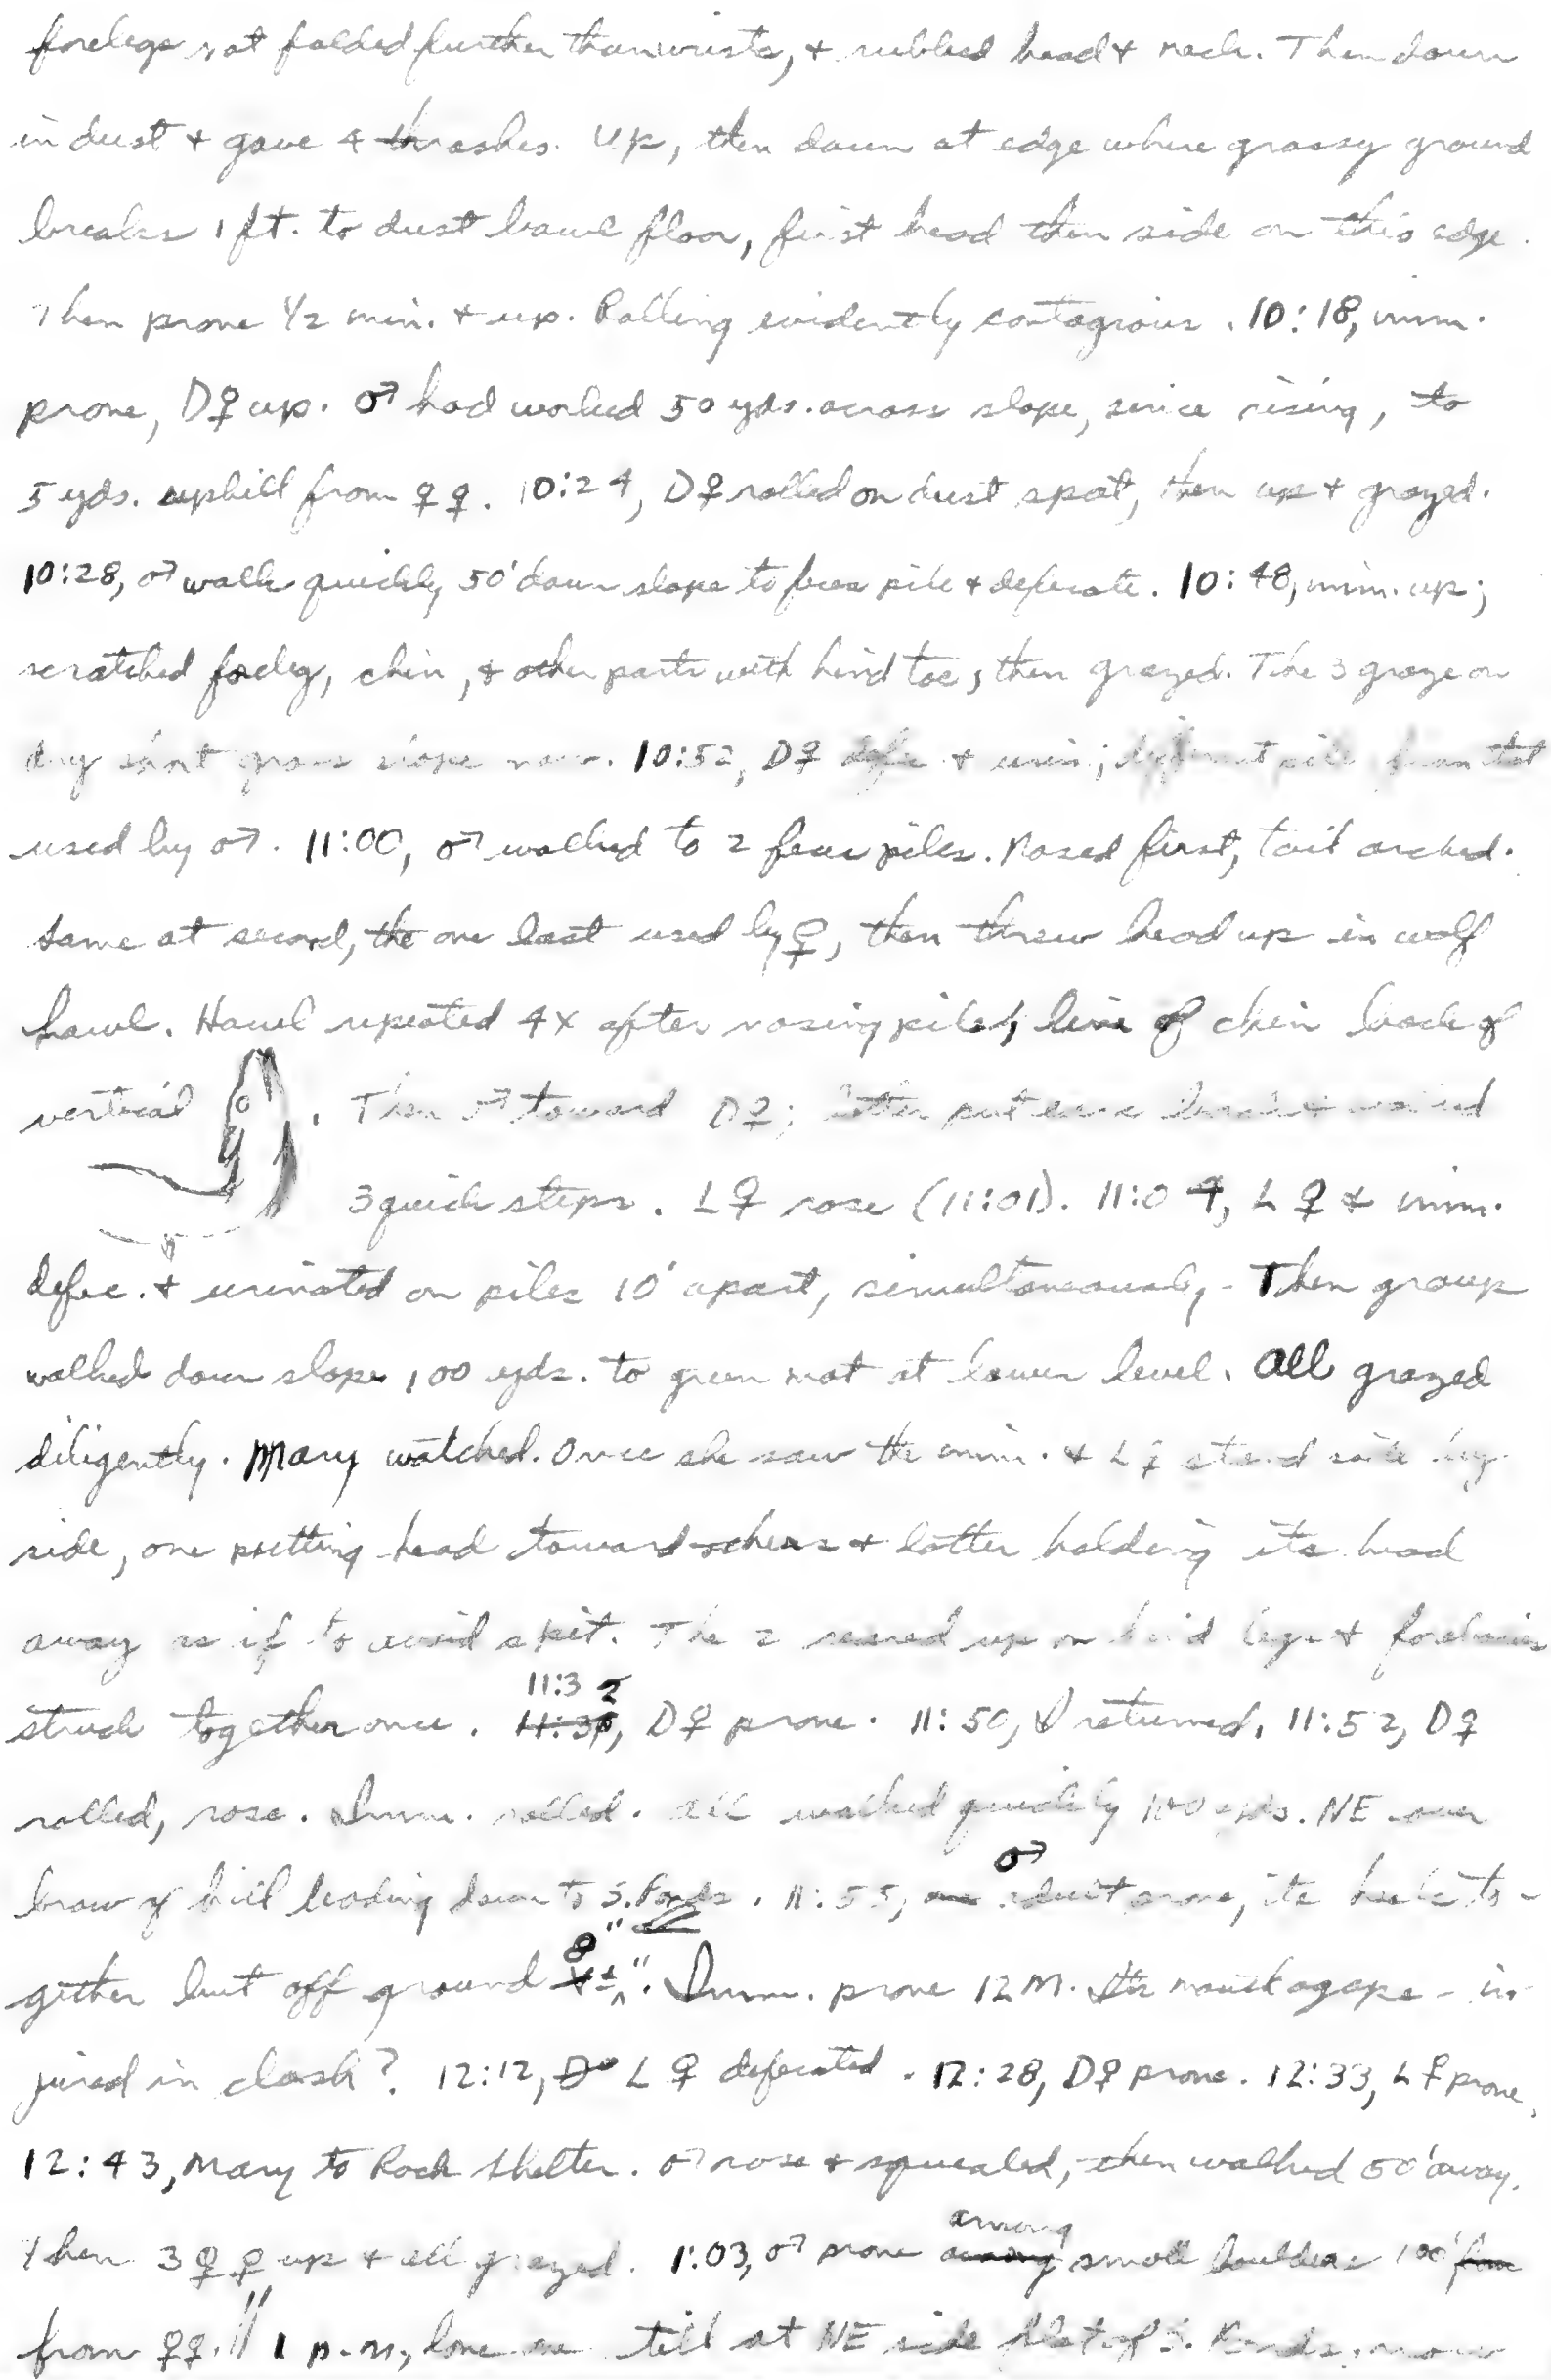 forelegs not folded further than wrists, + rubbed head + neck. Then down
in dust + gave 4 thrashes. Up, then down at edge where grassy ground
breaks 1 ft. to dust bowl floor, first head then side on this edge.
Then prone 1/2 min. + up. Rolling evidently contagious. 10:18, imm.
prone, D♀ up. ♂ had worked 50 yds. across slope, since rising, to
5 yds. uphill from ♀♀. 10:24, D♀ rolled on dust spot, then up + grazed.
10:28, ♂ walk quickly 50' down slope to feces pile + defecate. 10:48, imm. up;
scratched foreleg, chin, & other parts with hind toe, then grazed. The 3 graze on
dry short grass slope now. 10:52, D♀ defec + urin; different pile from that
used by ♂. 11:00, ♂ walked to 2 feces piles. Nosed first, tail arched.
Same at second, the one last used by ♀, then threw head up in wolf
howl. Howl repeated 4x after nosing pile, line of chin back of
vertical . Then ♂ toward D♀; latter put ears back + walked
3 quick steps. L♀ rose (11:01). 11:04, L♀ & imm.
defec. + urinated on piles 10' apart, simultaneously - Then group
walked down slope 100 yds. to green mat at lower level. All grazed
diligently. Mary watched. Once she saw the imm. + L♀ stand side by
side, one putting head toward others + latter holding its head
away as if to avoid spit. The 2 reared up on hind legs +
struck together once. 11:32, D♀ prone. 11:50, I returned. 11:52, D♀
rolled, rose. Imm. rolled. All walked quickly 100 yds. NE over
brow of hill leading down to S. Ponds. 11:55, ♂ adult prone, its heels to-
gether but off ground 8". Imm. prone 12 M. Its mouth agape - in-
jured in clash? 12:12, L♀ defecated. 12:28, D♀ prone. 12:33, L♀ prone.
12:43, Mary to Rock Shelter. ♂ rose + squealed, then walked 50' away.
Then 3 ♀♀ up + all grazed. 1:03, ♂ prone among small boulders 100'
from ♀♀. // 1 p.m., lone one still at NE side flat of S. Ponds, now